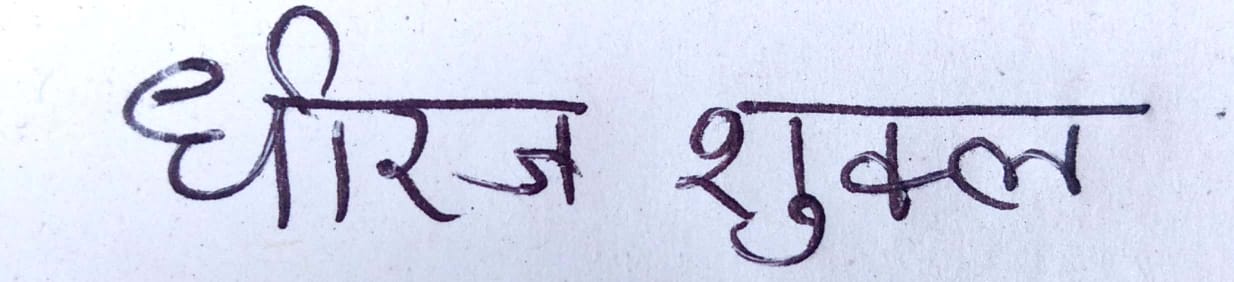 धीरज शुक्ल